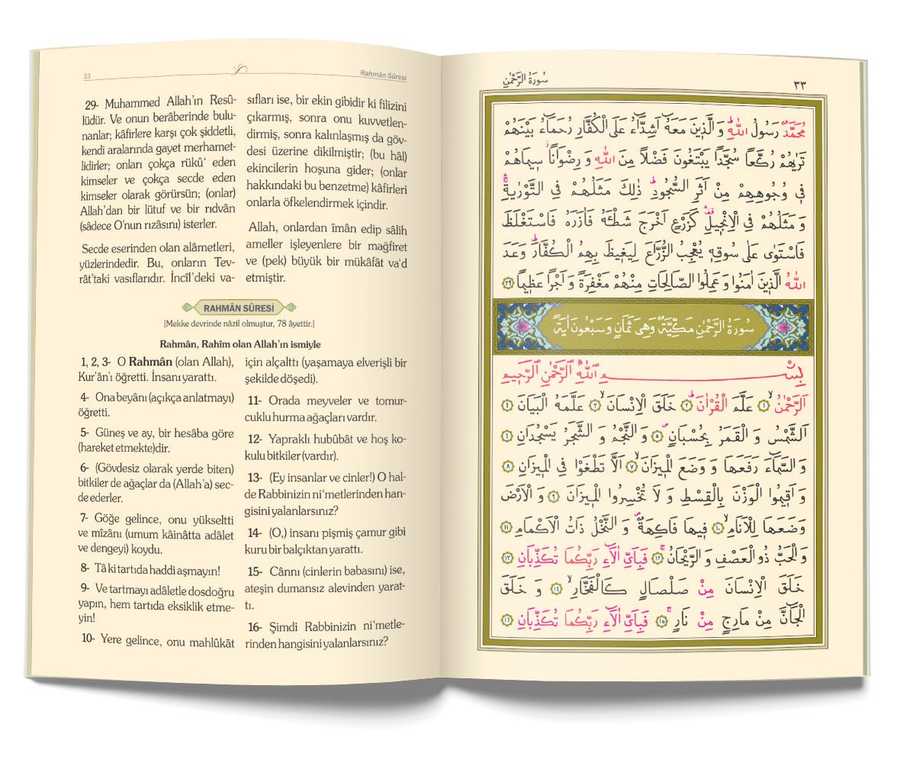 33
Rahmân Sûresi
29- Muhammed Allah'ın Resû-
lüdür. Ve onun berâberinde bulu-
nanlar; kâfirlere karşı çok şiddetli,
kendi aralarında gayet merhamet-
lidirler; onları çokça rükû' eden
kimseler ve çokça secde eden
kimseler olarak görürsün; (onlar)
Allah'dan bir lütuf ve bir rıdvân
(sâdece O'nun rızâsını) isterler.
Secde eserinden olan alâmetleri,
yüzlerindedir. Bu, onların Tev-
rât'taki vasıflarıdır. İncîl'deki va-
sıfları ise, bir ekin gibidir ki filizini
çıkarmış, sonra onu kuvvetlen-
dirmiş, sonra kalınlaşmış da göv-
desi üzerine dikilmiştir; (bu hâl)
ekincilerin hoşuna gider; (onlar
hakkındaki bu benzetme) kâfirleri
onlarla öfkelendirmek içindir.
Allah, onlardan îmân edip sâlih
ameller işleyenlere bir mağfiret
ve (pek) büyük bir mükâfât va'd
etmiştir.
RAHMÂN SÛRESİ
[Mekke devrinde nâzil olmuştur, 78 âyettir.]
Rahmân, Rahîm olan Allah'ın ismiyle
1, 2, 3- O Rahmân (olan Allah),
Kur'ân'ı öğretti. İnsanı yarattı.
4- Ona beyânı (açıkça anlatmayı)
öğretti.
5- Güneş ve ay, bir hesâba göre
(hareket etmekte)dir.
6- (Gövdesiz olarak yerde biten)
bitkiler de ağaçlar da (Allah'a) sec-
de ederler.
7- Göğe gelince, onu yükseltti
ve mîzânı (umum kâinâtta adâlet
ve dengeyi) koydu.
8- Tâ ki tartıda haddi aşmayın!
9- Ve tartmayı adâletle dosdoğru
yapın, hem tartıda eksiklik etme-
yin!
10- Yere gelince, onu mahlûkāt
için alçalttı (yaşamaya elverişli bir
şekilde döşedi).
11- Orada meyveler ve tomur-
cuklu hurma ağaçları vardır.
12- Yapraklı hubûbât ve hoş ko-
kulu bitkiler (vardır).
13- (Ey insanlar ve cinler!) O hal-
de Rabbinizin ni'metlerinden han-
gisini yalanlarsınız?
14- (O,) insanı pişmiş çamur gibi
kuru bir balçıktan yarattı.
15- Cânnı (cinlerin babasını) ise,
ateşin dumansız alevinden yarat-
tı.
16- Şimdi Rabbinizin ni'metle-
rinden hangisini yalanlarsınız?
سُورَةُ الرَّحْمٰنِ
٣٣
مُحَمَّدٌ رَسُولُ اللّٰهِ وَالَّذِينَ مَعَهُٓ اَشِدَّٓاءُ عَلَى الْكُفَّارِ رُحَمَٓاءُ بَيْنَهُمْ
تَرٰيهُمْ رُكَّعًا سُجَّدًا يَبْتَغُونَ فَضْلًا مِنَ اللّٰهِ وَرِضْوَانًا سِيمَاهُمْ
فِى وُجُوهِهِمْ مِنْ اَثَرِ السُّجُودِ ذٰلِكَ مَثَلُهُمْ فِى التَّوْرٰيةِ
وَمَثَلُهُمْ فِى الْاِنْجِيلِ كَزَرْعٍ اَخْرَجَ شَطْـَٔهُ فَاٰزَرَهُ فَاسْتَغْلَظَ
فَاسْتَوٰى عَلٰى سُوقِهِ يُعْجِبُ الزُّرَّاعَ لِيَغِيظَ بِهِمُ الْكُفَّارَ وَعَدَ
اللّٰهُ الَّذِينَ اٰمَنُوا وَعَمِلُوا الصَّالِحَاتِ مِنْهُمْ مَغْفِرَةً وَاَجْرًا عَظِيمًا ﴿٢٩﴾
سُورَةُ الرَّحْمٰنِ مَكِّيَّةٌ وَهِىَ ثَمَانٍ وَسَبْعُونَ اٰيَةً
بِسْمِ اللّٰهِ الرَّحْمٰنِ الرَّحِيمِ
اَلرَّحْمٰنُ ﴿١﴾ عَلَّمَ الْقُرْاٰنَ ﴿٢﴾ خَلَقَ الْاِنْسَانَ ﴿٣﴾ عَلَّمَهُ الْبَيَانَ ﴿٤﴾
اَلشَّمْسُ وَالْقَمَرُ بِحُسْبَانٍ ﴿٥﴾ وَالنَّجْمُ وَالشَّجَرُ يَسْجُدَانِ ﴿٦﴾
وَالسَّمَٓاءَ رَفَعَهَا وَوَضَعَ الْمِيزَانَ ﴿٧﴾ اَلَّا تَطْغَوْا فِى الْمِيزَانِ ﴿٨﴾
وَاَقِيمُوا الْوَزْنَ بِالْقِسْطِ وَلَا تُخْسِرُوا الْمِيزَانَ ﴿٩﴾ وَالْاَرْضَ
وَضَعَهَا لِلْاَنَامِ ﴿١٠﴾ فِيهَا فَاكِهَةٌ وَالنَّخْلُ ذَاتُ الْاَكْمَامِ ﴿١١﴾
وَالْحَبُّ ذُوالْعَصْفِ وَالرَّيْحَانُ ﴿١٢﴾ فَبِاَىِّ اٰلَٓاءِ رَبِّكُمَا تُكَذِّبَانِ ﴿١٣﴾
خَلَقَ الْاِنْسَانَ مِنْ صَلْصَالٍ كَالْفَخَّارِ ﴿١٤﴾ وَخَلَقَ
الْجَٓانَّ مِنْ مَارِجٍ مِنْ نَارٍ ﴿١٥﴾ فَبِاَىِّ اٰلَٓاءِ رَبِّكُمَا تُكَذِّبَانِ ﴿١٦﴾